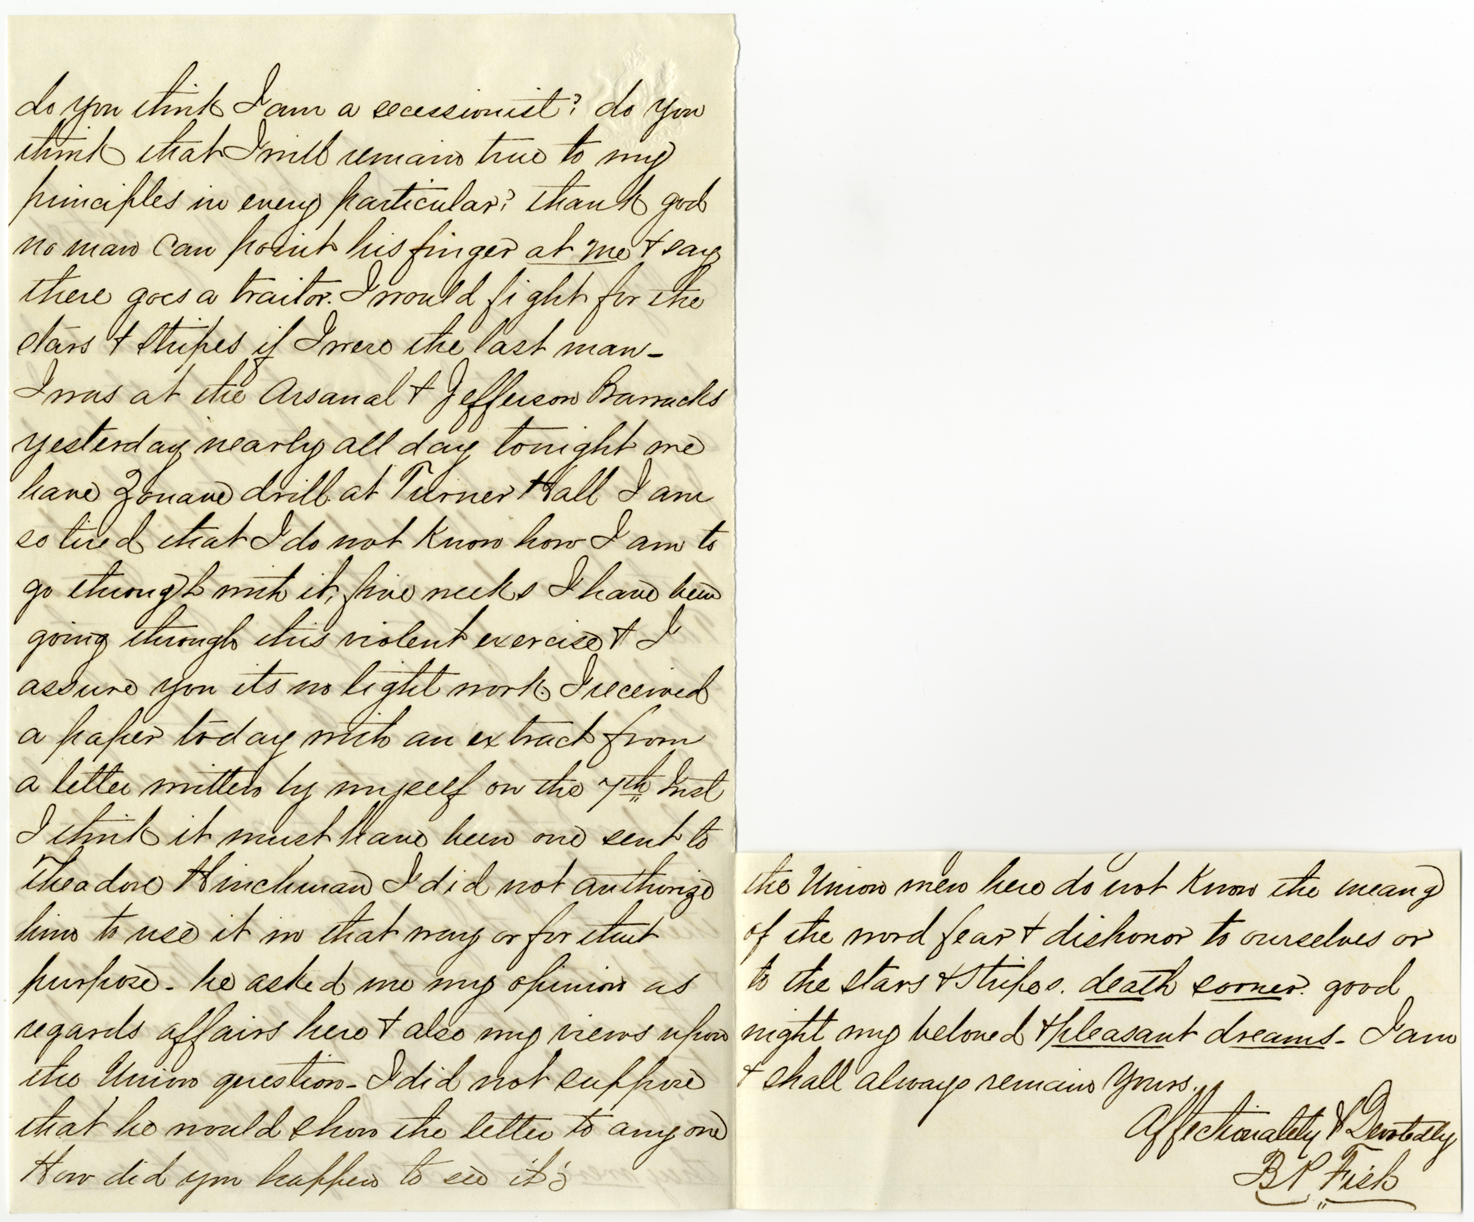 do you think I am a secessionist? do you
think that I will remain true to my
principles in every particular? thank god
no man can point his finger at me & say
there goes a traitor. I would fight for the
stars & stripes if I were the last man -
I was at the Arsanal & Jefferson Barracks
yesterday nearly all day tonight we
have Zouave drill at Turner Hall I am
so tired that I do not know how I am to
go through with it, five weeks I have been
going through this violent exercise & I
assure you its no light work I received
a paper today with an extract from
a letter written by myself on the 7th Inst
I think it must have been one sent to
Theadore Hinchman I did not authorize
him to use it in that way or for that
purpose - he asked me my opinion as
regards affairs here & also my views upon
the Union question - I did not suppose
that he would show the letter to any one
How did you happen to see it?
the Union men here do not know the meang
of the word fear & dishonor to ourselves or
to the stars & stripes. death sooner. good
night my beloved & pleasant dreams - I am
& shall always remain yours.
Affectionately & Devotedly
B P Fish